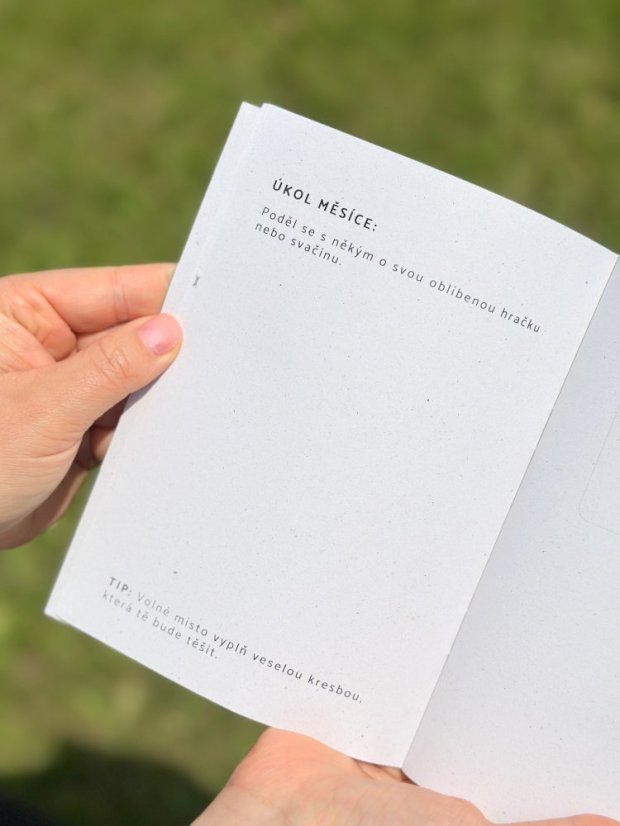 ÚKOL MĚSÍCE:
Poděl se s někým o svou oblíbenou hračku
nebo svačinu.
TIP: Volné místo vyplň veselou kresbou,
která tě bude těšit.